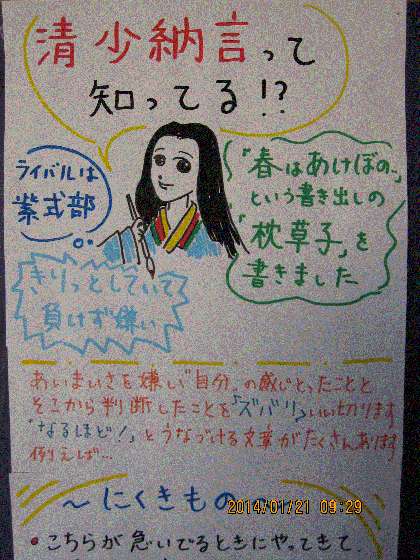 清少納言って
知ってる!?
ライバルは
紫式部
「春はあけぼの…」
という書き出しの
「枕草子」を
書きました
きりっとしていて
負けず嫌い
あいまいさを嫌い"自分"の感じとったことと
そこから判断したことを「ズバリ」いい切ります
"なるほど!"とうなづける文章がたくさんあります
例えば…
〜にくきもの〜
・こちらが急いでるときにやってきて
2014/01/21 09:29